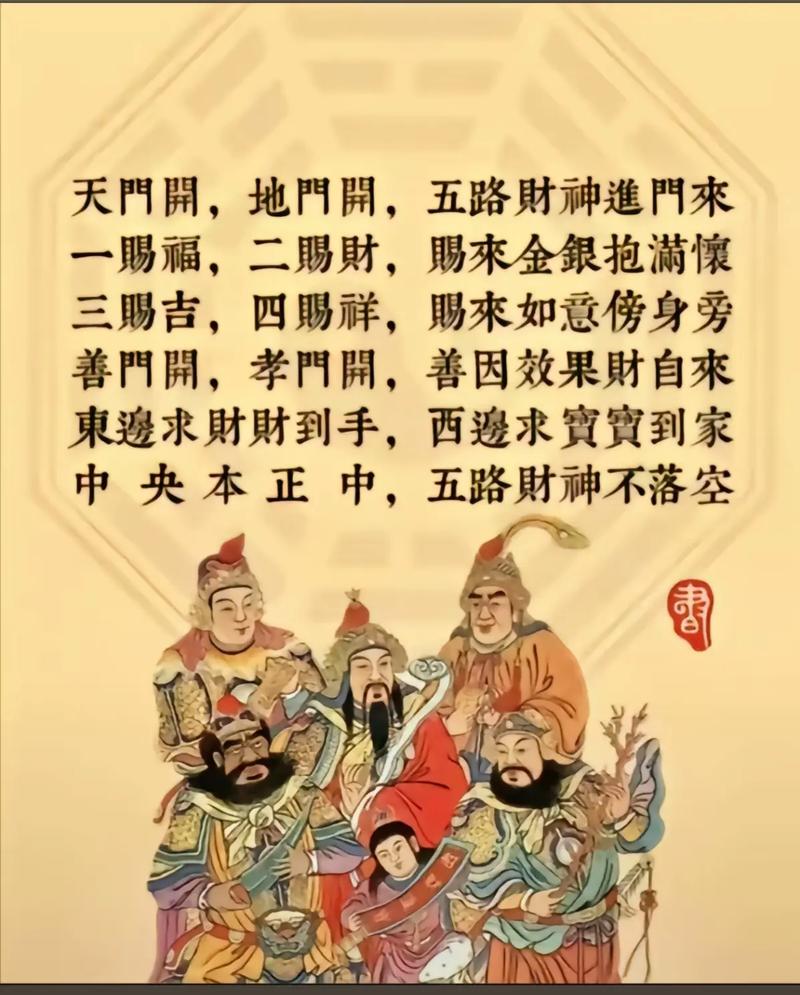 天門開，地門開，五路財神進門來
一賜福，二賜財，賜來金銀抱滿懷
三賜吉，四賜祥，賜來如意傍身旁
善門開，孝門開，善因效果財自來
東邊求財財到手，西邊求寶寶到家
中央本正中，五路財神不落空
書